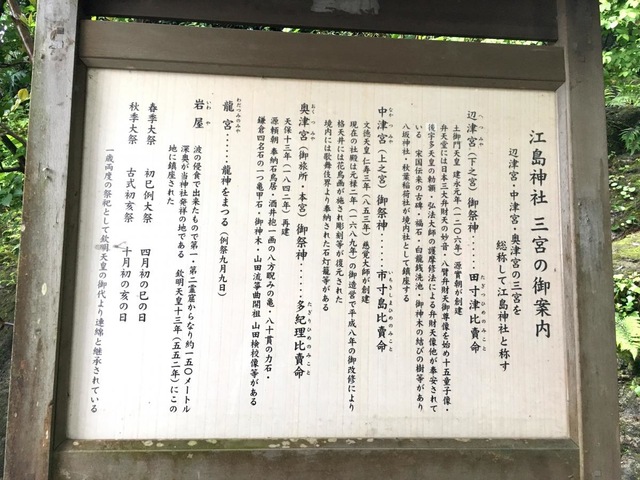 江島神社 三宮の御案内
辺津宮・中津宮・奥津宮の三宮を
総称して江島神社と称す
辺津宮（下之宮）御祭神‥‥‥田寸津比賣命
へつみや
たぎつひめのみこと
土御門天皇 建永元年（一二〇六年）源實朝が創建
弁天堂には日本三大弁財天の妙音・八臂弁財天御尊像を始め十五童子像・
後宇多天皇の勅額・弘法大師の護摩修法による弁財天像他が奉安されて
いる 宋国伝来の古碑・福石・白龍銭洗池・御神木の結びの樹等があり
八坂神社・秋葉稲荷社が境内社として鎮座する
中津宮（上之宮）御祭神‥‥‥市寸島比賣命
なかつみや
いちきしまひめのみこと
文徳天皇 仁寿三年（八五三年）慈覚大師が創建
現在の社殿は元禄二年（一六八九年）の御造営で平成八年の御改修により
格天井には花鳥画が施され彫刻等が復元された
境内には歌舞伎界より奉納された石灯籠等がある
奥津宮（御旅所・本宮）御祭神‥‥‥多紀理比賣命
おくつみや
たぎりひめのみこと
天保十三年（一八四二年）再建
源頼朝 奉納石鳥居・酒井抱一画の八方睨みの亀・八十貫の力石・
鎌倉四名石の一つ亀甲石・御神木・山田流箏曲開祖 山田検校像等がある
龍宮‥‥‥龍神をまつる（例祭九月九日）
わだつみのみや
岩屋
いわや
波の侵食で出来たもので第一・第二霊窟からなり約一五〇メートル
深奥が当神社発祥の地である 欽明天皇十三年（五五二年）にこの
地に鎮座された
春季大祭 初巳例大祭 四月初の巳の日
秋季大祭 古式初亥祭 十月初の亥の日
一歳両度の祭祀として欽明天皇の御代より連綿と継承されている